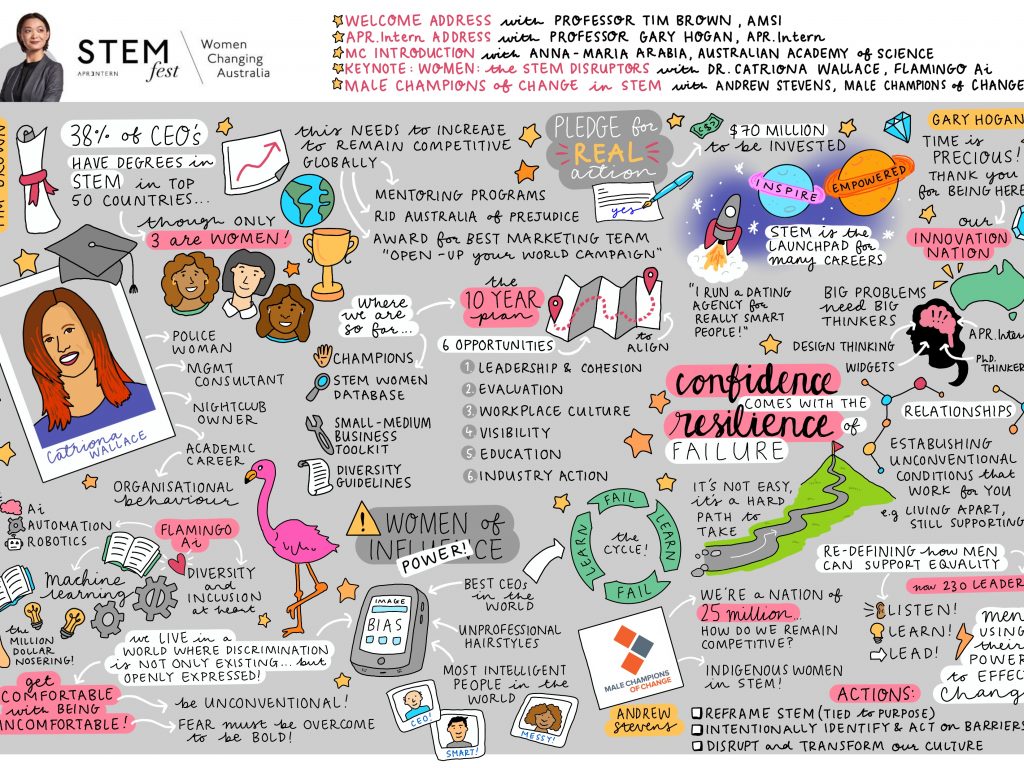 STEM
fest
APRINTERN
Women
Changing
Australia
WELCOME ADDRESS with PROFESSOR TIM BROWN, AMSI
APR.Intern ADDRESS with PROFESSOR GARY HOGAN, APR.Intern
MC INTRODUCTION with ANNA-MARIA ARABIA, AUSTRALIAN ACADEMY of SCIENCE
KEYNOTE: WOMEN: the STEM DISRUPTORS with DR. CATRIONA WALLACE, FLAMINGO Ai
MALE CHAMPIONS of CHANGE in STEM with ANDREW STEVENS, MALE CHAMPIONS of CHANGE
TIM BROWN
38% of CEO's
HAVE DEGREES in
STEM in TOP
50 COUNTRIES...
though ONLY
3 are WOMEN!
this NEEDS to INCREASE
to REMAIN COMPETITIVE
GLOBALLY
MENTORING PROGRAMS
RID AUSTRALIA of PREJUDICE
AWARD for BEST MARKETING TEAM
"OPEN-UP your WORLD CAMPAIGN"
PLEDGE for
REAL
action
yes
$70 MILLION
to be INVESTED
INSPIRE
EMPOWERED
STEM is the
LAUNCHPAD for
many CAREERS
GARY HOGAN
TIME is
PRECIOUS!
THANK YOU
for BEING HERE
our
INNOVATION
NATION
"I RUN a DATING
AGENCY for
REALLY SMART
PEOPLE!"
BIG PROBLEMS
need BIG
THINKERS
DESIGN THINKING
WIDGETS
APR.Intern
Ph.D.
THINKER
Catriona
WALLACE
POLICE
WOMAN
MGMT
CONSULTANT
NIGHTCLUB
OWNER
ACADEMIC
CAREER
ORGANISATIONAL
behaviour
where
we are
so far...
CHAMPIONS
STEM WOMEN
DATABASE
SMALL-MEDIUM
BUSINESS
TOOLKIT
DIVERSITY
GUIDELINES
the
10 YEAR
plan
to
ALIGN
6 OPPORTUNITIES
1 LEADERSHIP & COHESION
2 EVALUATION
3 WORKPLACE CULTURE
4 VISIBILITY
5 EDUCATION
6 INDUSTRY ACTION
confidence
COMES WITH THE
resilience of
FAILURE
IT'S NOT EASY,
it's a HARD
PATH to
TAKE
RELATIONSHIPS
ESTABLISHING
UNCONVENTIONAL
CONDITIONS that
WORK for YOU
e.g LIVING APART,
STILL SUPPORTING
Ai
AUTOMATION
ROBOTICS
FLAMINGO
Ai
Machine
learning
DIVERSITY
and
INCLUSION
at heart
the
MILLION
DOLLAR
NOSERING!
we LIVE in a
WORLD WHERE DISCRIMINATION
is NOT ONLY EXISTING... but
OPENLY EXPRESSED!
get
COMFORTABLE
with BEING
UNCOMFORTABLE!
be UNCONVENTIONAL!
FEAR must be OVERCOME
to be BOLD!
WOMEN of
INFLUENCE
POWER!
IMAGE
BIAS
BEST CEOs
in the
WORLD
UNPROFESSIONAL
HAIRSTYLES
MOST INTELLIGENT
PEOPLE in the
WORLD
CEO!
SMART!
MESSY!
FAIL
LEARN
FAIL
LEARN
the
CYCLE!
MALE CHAMPIONS
OF CHANGE
ANDREW
Stevens
WE'RE a NATION of
25 million...
HOW DO WE REMAIN
COMPETITIVE?
INDIGENOUS WOMEN
in STEM!
RE-DEFINING how MEN
CAN SUPPORT EQUALITY
now 230 LEADER
LISTEN!
LEARN!
LEAD!
men
USING
their
POWER
to EFFECT
Change
ACTIONS:
REFRAME STEM (TIED to PURPOSE)
INTENTIONALLY IDENTIFY & ACT on BARRIERS
DISRUPT and TRANSFORM our CULTURE